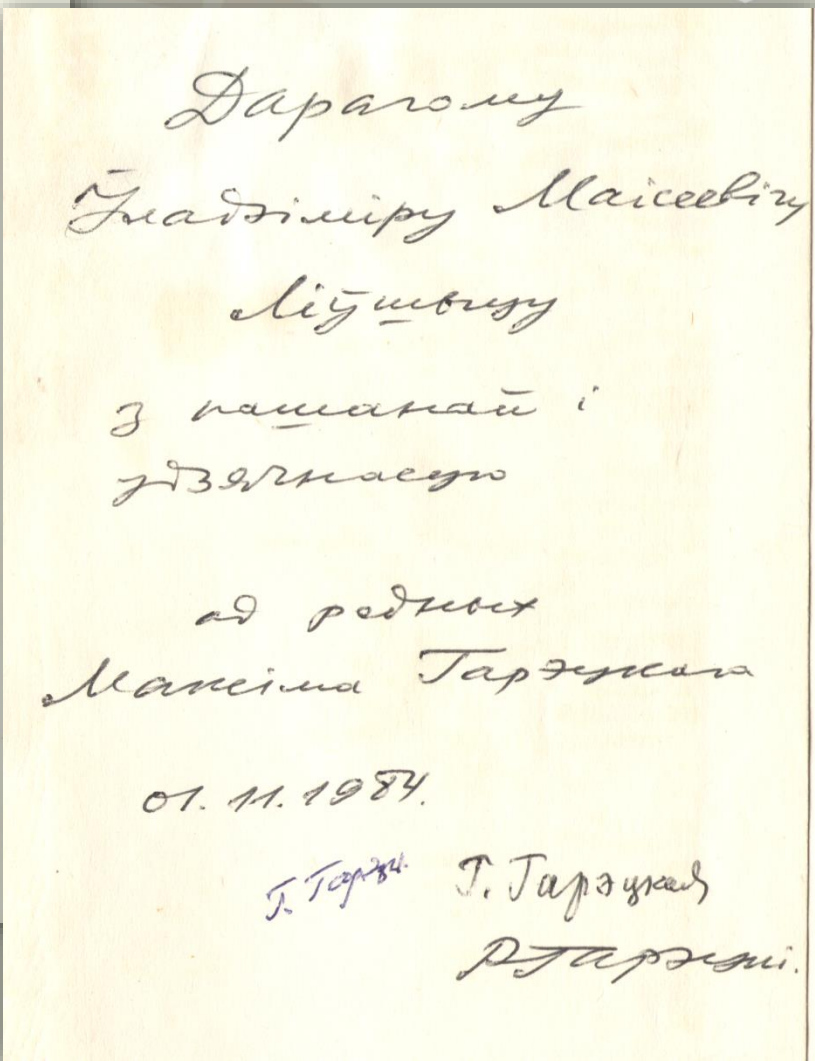 Дарагому
Ўладзіміру Маісеевічу
Ліўшыцу
з пашанай і
удзячнасцю
ад родных
Максіма Гарэцкага
01.11.1984.
Г. Гарэцкая
Р Гарэцкі.